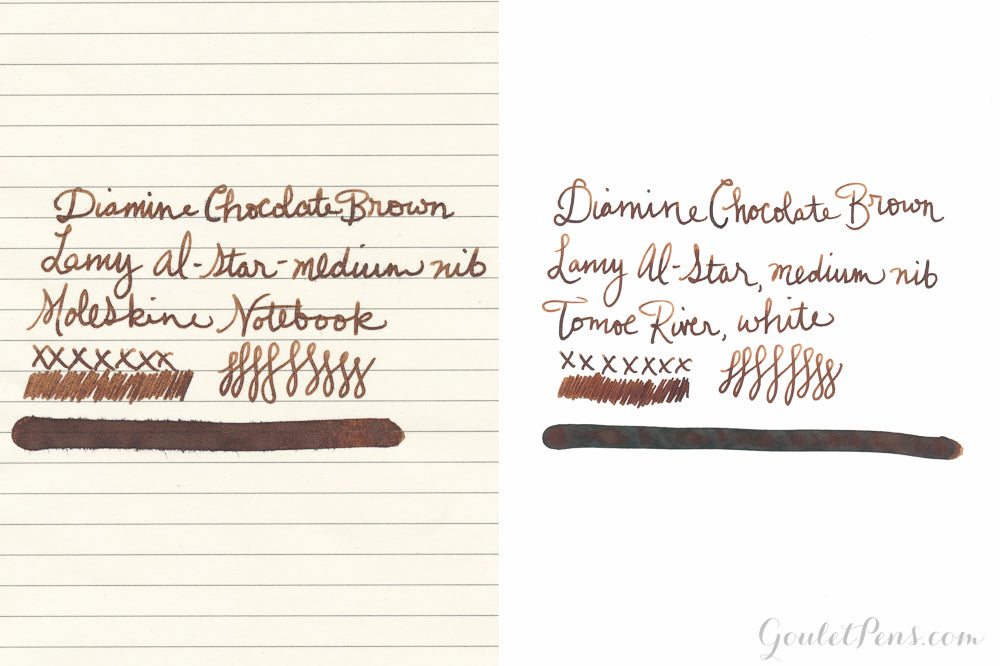 Diamine Chocolate Brown
Lamy Al-Star-medium nib
Moleskine Notebook
xxxxxxx
Diamine Chocolate Brown
Lamy Al-Star, medium nib
Tomoe River, white
xxxxxxx
GouletPens.com